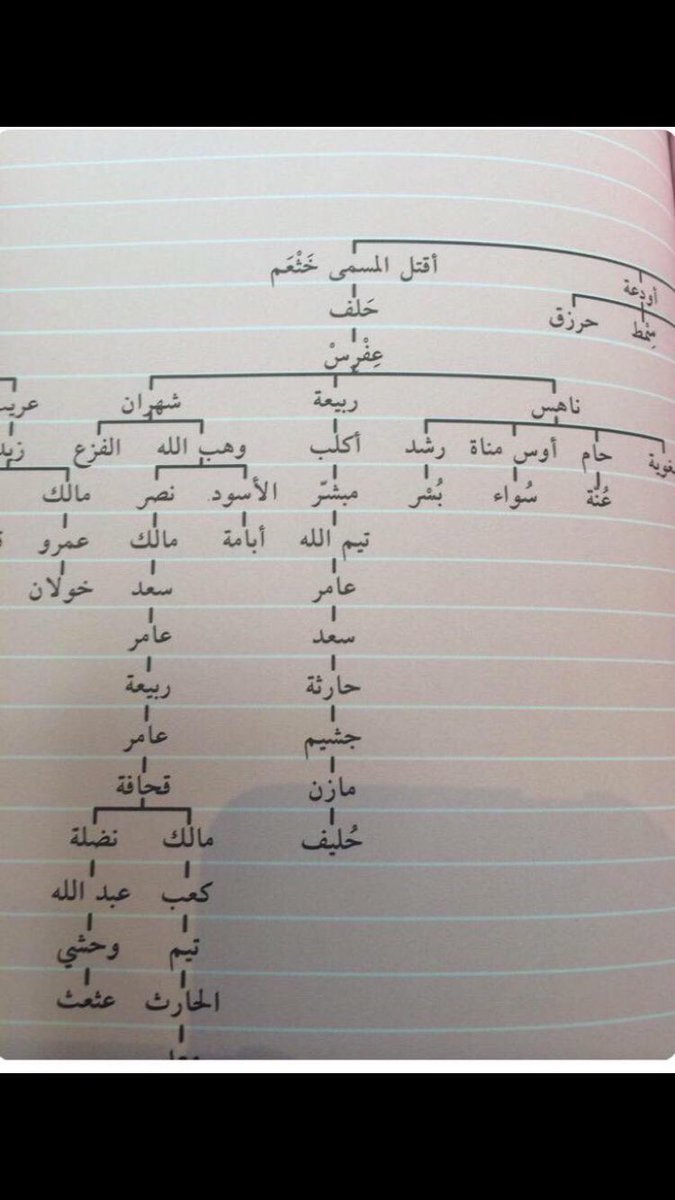 أقتل المسمى خَثْعَم
أودعة
حَلف
حرزق
سِمْط
عِفْرِسْ
ناهس ربيعة شهران
حام أوس مناة رشد أكلب وهب الله الفزع
عُنَّة سُواء بُسْر مبشّر الأسود نصر مالك
تيم الله أبامة مالك عمرو
عامر سعد خولان
سعد عامر
حارثة ربيعة
جشيم عامر
مازن قحافة
حُليف مالك نضلة
كعب عبد الله
تيم وحشي
الحارث عثعث